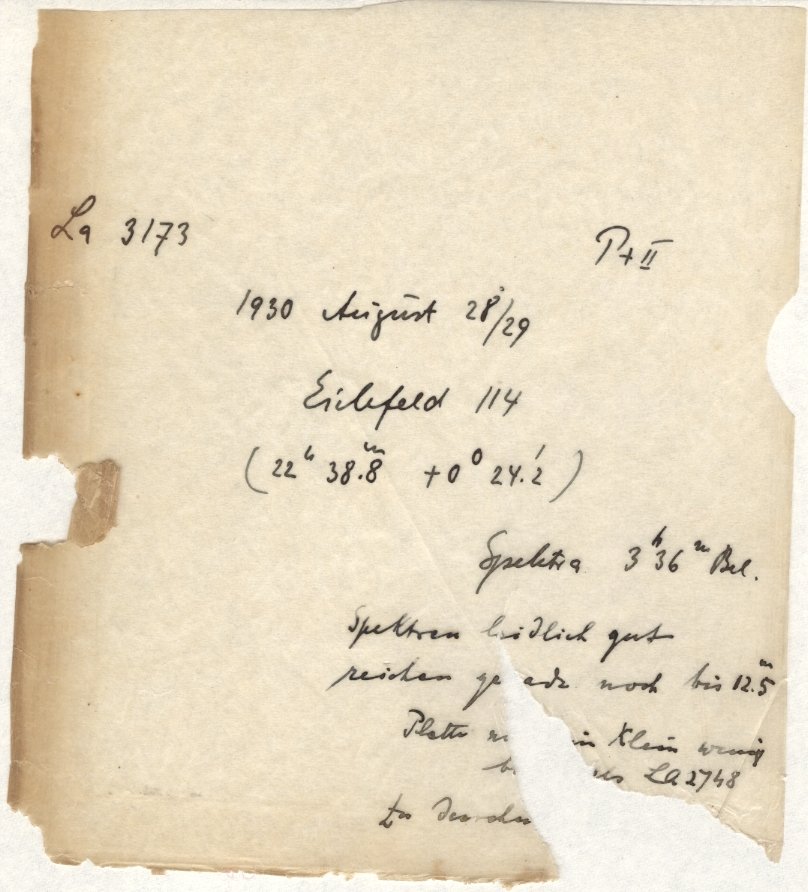 La 3173 P+II
1930 August 28/29
Eichfeld 114
(22h 38.8m +0° 24.2')
Spektra 3h36m Bel.
Spektren leidlich gut
reichen gerade noch bis 12.5m
Platte ein klein wenig
La 2748